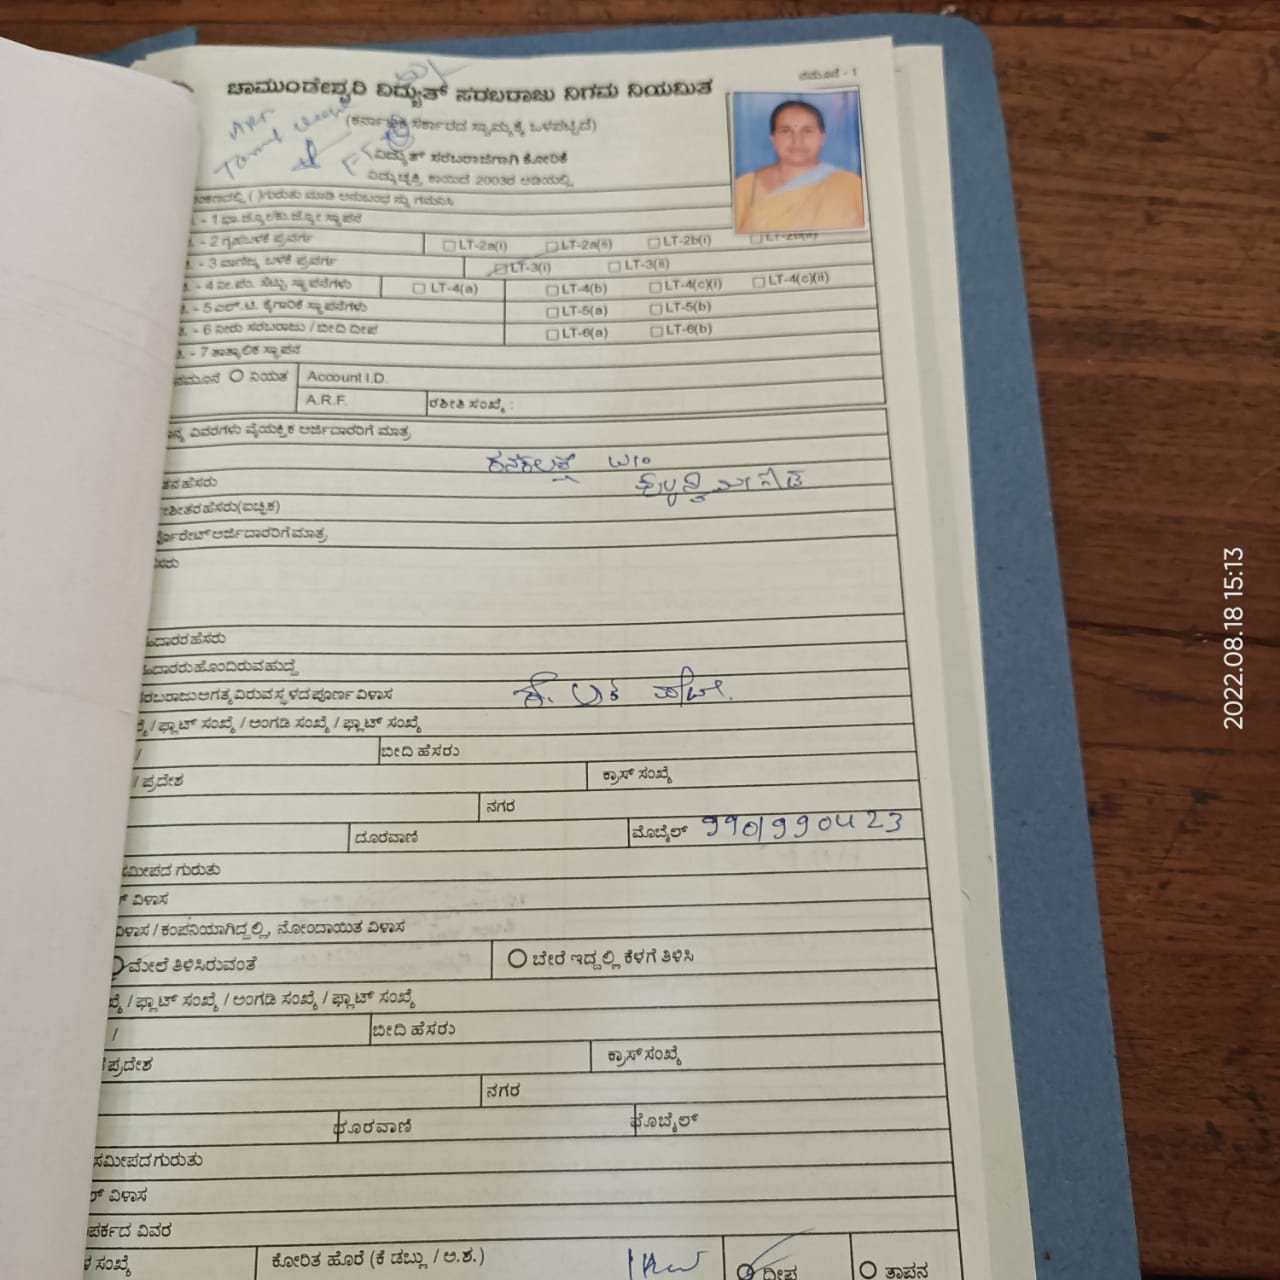 ನಮೂನೆ - 1
ಚಾಮುಂಡೇಶ್ವರಿ ವಿದ್ಯುತ್ ಸರಬರಾಜು ನಿಗಮ ನಿಯಮಿತ
(ಕರ್ನಾಟಕ ಸರ್ಕಾರದ ಸ್ವಾಮ್ಯಕ್ಕೆ ಒಳಪಟ್ಟಿದೆ)
ವಿದ್ಯುತ್ ಸರಬರಾಜಿಗಾಗಿ ಕೋರಿಕೆ
ವಿದ್ಯುಚ್ಛಕ್ತಿ ಕಾಯಿದೆ 2003ರ ಅಡಿಯಲ್ಲಿ
( )ಗುರುತು ಮಾಡಿ ಅನುಬಂಧ ನ್ನು ಗಮನಿಸಿ
- 1 ಭಾ.ಜ್ಯೋ/ಕು.ಜ್ಯೋ ಸ್ಥಾಪನೆ
- 2 ಗೃಹಬಳಕೆ ಪ್ರವರ್ಗ LT-2a(i) LT-2a(ii) LT-2b(i) LT-2b(ii)
- 3 ವಾಣಿಜ್ಯ ಬಳಕೆ ಪ್ರವರ್ಗ LT-3(i) LT-3(ii)
- 4 ನೀ.ಪಂ. ಸೆಟ್ಟು ಸ್ಥಾಪನೆಗಳು LT-4(a) LT-4(b) LT-4(c)(i) LT-4(c)(ii)
- 5 ಎಲ್.ಟಿ. ಕೈಗಾರಿಕೆ ಸ್ಥಾಪನೆಗಳು LT-5(a) LT-5(b)
- 6 ನೀರು ಸರಬರಾಜು / ಬೀದಿ ದೀಪ LT-6(a) LT-6(b)
- 7 ತಾತ್ಕಾಲಿಕ ಸ್ಥಾಪನೆ
ನಮೂನೆ ನಿಯತ Account I.D.
A.R.F. ರಶೀತಿ ಸಂಖ್ಯೆ :
ವಿವರಗಳು ವೈಯಕ್ತಿಕ ಅರ್ಜಿದಾರರಿಗೆ ಮಾತ್ರ
ಕನಕಲಕ್ಷ್ಮಿ W/o
ಹೆಸರು
ಹೆಸರು(ಐಚ್ಛಿಕ)
ಅರ್ಜಿದಾರರಿಗೆ ಮಾತ್ರ
ದಾರರ ಹೆಸರು
ದಾರರು ಹೊಂದಿರುವ ಹುದ್ದೆ
ರಬರಾಜು ಅಗತ್ಯವಿರುವ ಸ್ಥಳದ ಪೂರ್ಣ ವಿಳಾಸ
/ ಫ್ಲಾಟ್ ಸಂಖ್ಯೆ / ಅಂಗಡಿ ಸಂಖ್ಯೆ / ಫ್ಲಾಟ್ ಸಂಖ್ಯೆ
/ ಬೀದಿ ಹೆಸರು
/ ಪ್ರದೇಶ ಕ್ರಾಸ್ ಸಂಖ್ಯೆ
ನಗರ
ದೂರವಾಣಿ ಮೊಬೈಲ್ 9901990423
ಸಮೀಪದ ಗುರುತು
ವಿಳಾಸ
ವಿಳಾಸ / ಕಂಪನಿಯಾಗಿದ್ದಲ್ಲಿ, ನೋಂದಾಯಿತ ವಿಳಾಸ
ಮೇಲೆ ತಿಳಿಸಿರುವಂತೆ ಬೇರೆ ಇದ್ದಲ್ಲಿ ಕೆಳಗೆ ತಿಳಿಸಿ
/ ಫ್ಲಾಟ್ ಸಂಖ್ಯೆ / ಅಂಗಡಿ ಸಂಖ್ಯೆ / ಫ್ಲಾಟ್ ಸಂಖ್ಯೆ
/ ಬೀದಿ ಹೆಸರು
ಪ್ರದೇಶ ಕ್ರಾಸ್ ಸಂಖ್ಯೆ
ನಗರ
ದೂರವಾಣಿ ಮೊಬೈಲ್
ಸಮೀಪದ ಗುರುತು
ವಿಳಾಸ
ವಿವರ
ಸಂಖ್ಯೆ ಕೋರಿತ ಹೊರೆ (ಕೆ ಡಬ್ಲು / ಅ.ಶ.) 1KW ದೀಪ ತಾಪನ
2022.08.18 15:13